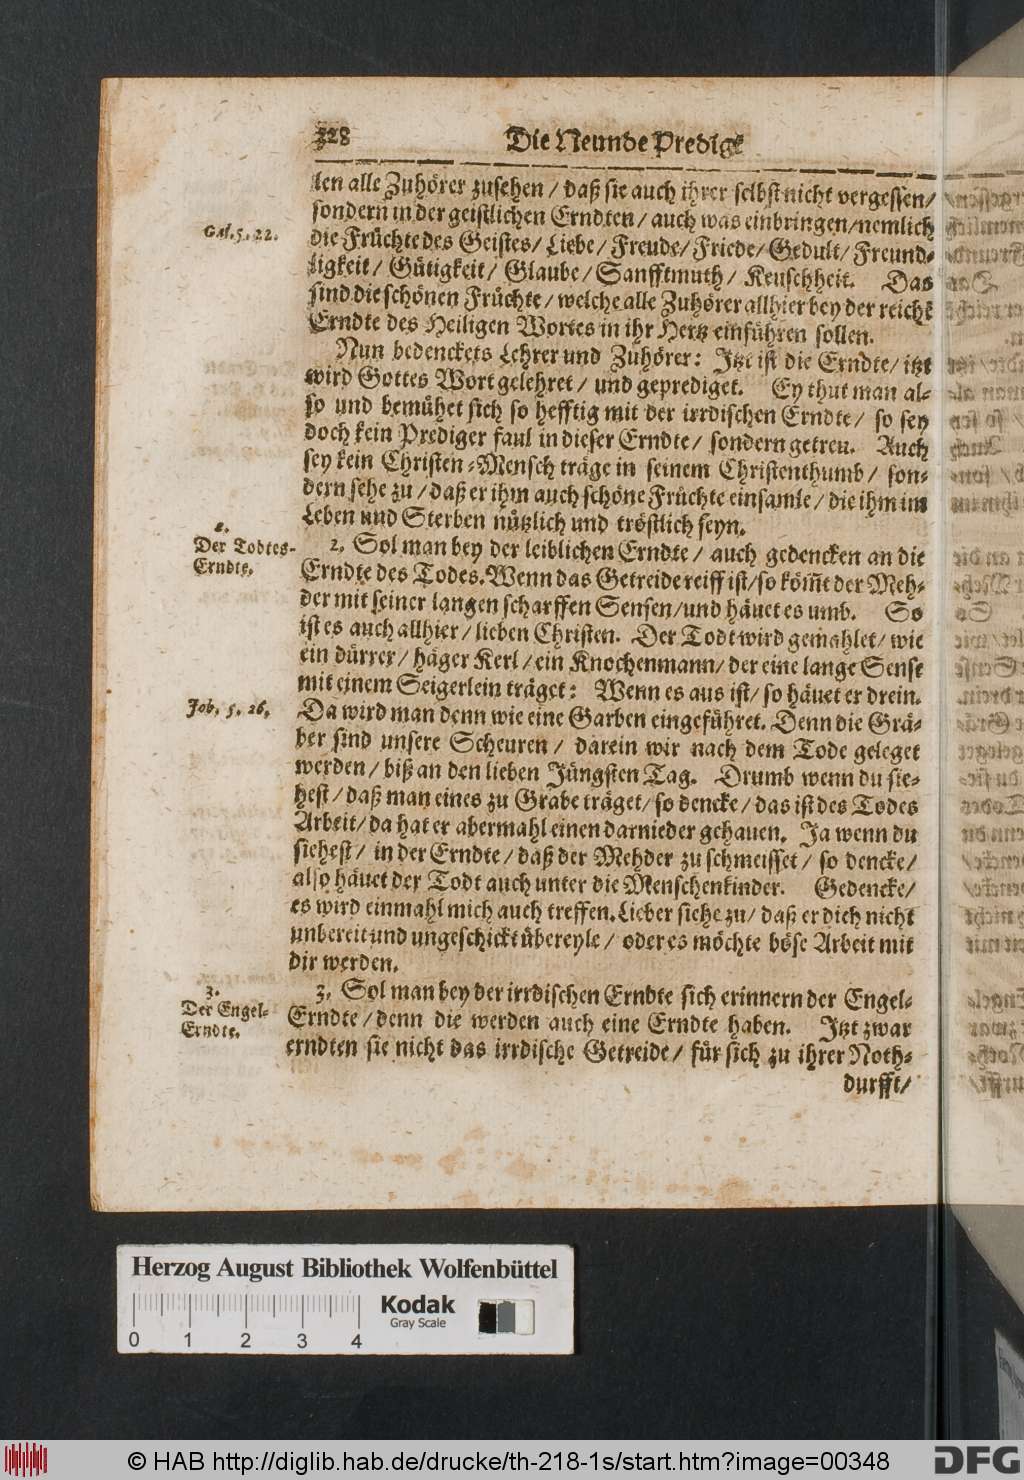 328 Die Neunde Predigt
len alle Zuhörer zusehen / daß sie auch ihrer selbst nicht vergessen /
sondern in der geistlichen Erndten / auch was einbringen / nemlich
Gal. 5. 22.
die Früchte des Geistes / Liebe / Freude / Friede / Gedult / Freund-
ligkeit / Gütigkeit / Glaube / Sanfftmuth / Keuschheit. Das
sind die schönen Früchte / welche alle Zuhörer allhier bey der reichē
Erndte des Heiligen Wortes in ihr Hertz einführen sollen.
Nun bedenckets Lehrer und Zuhörer: Jtzt ist die Erndte / itzt
wird Gottes Wort gelehret / und geprediget. Ey thut man al-
so und bemühet sich so hefftig mit der irrdischen Erndte / so sey
doch kein Prediger faul in dieser Erndte / sondern getreu. Auch
sey kein Christen-Mensch träge in seinem Christenthumb / son-
dern sehe zu / daß er ihm auch schöne Früchte einsamle / die ihm im
Leben und Sterben nützlich und tröstlich seyn.
2.
Der Todtes-
Erndte.
2. Sol man bey der leiblichen Erndte / auch gedencken an die
Erndte des Todes. Wenn das Getreide reiff ist / so köm̃t der Meh-
der mit seiner langen scharffen Sensen / und häuet es umb. So
ist es auch allhier / lieben Christen. Der Todt wird gemahlet / wie
ein dürrer / häger Kerl / ein Knochenmann / der eine lange Sense
mit einem Seigerlein träget: Wenn es aus ist / so häuet er drein.
Job. 5. 26.
Da wird man denn wie eine Garben eingeführet. Denn die Grä-
ber sind unsere Scheuren / darein wir nach dem Tode geleget
werden / biß an den lieben Jüngsten Tag. Drumb wenn du sie-
hest / daß man eines zu Grabe träget / so dencke / das ist des Todes
Arbeit / da hat er abermahl einen darnieder gehauen. Ja wenn du
siehest / in der Erndte / daß der Mehder zu schmeisset / so dencke /
also häuet der Todt auch unter die Menschenkinder. Gedencke /
es wird einmahl mich auch treffen. Lieber siehe zu / daß er dich nicht
unbereit und ungeschickt übereyle / oder es möchte böse Arbeit mit
dir werden.
3.
Der Engel-
Erndte.
3. Sol man bey der irrdischen Erndte sich erinnern der Engel-
Erndte / denn die werden auch eine Erndte haben. Jtzt zwar
erndten sie nicht das irrdische Getreide / für sich zu ihrer Noth-
durfft /
Herzog August Bibliothek Wolfenbüttel
Kodak
Gray Scale
0 1 2 3 4
© HAB http://diglib.hab.de/drucke/th-218-1s/start.htm?image=00348
DFG